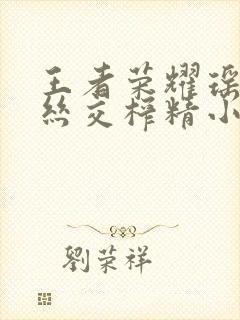 王者荣耀瑶
丝交榨精小
劉荣祥